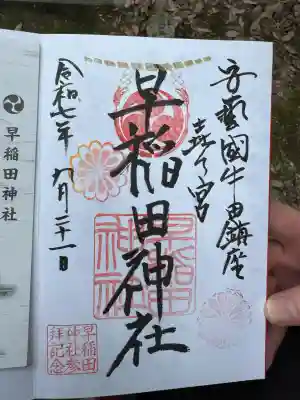 安藝國牛田鎮座
早稲田神社
早稲田
神社
令和七年 九月二十一日
早稲田
神社参
拝記念
早稲田神社